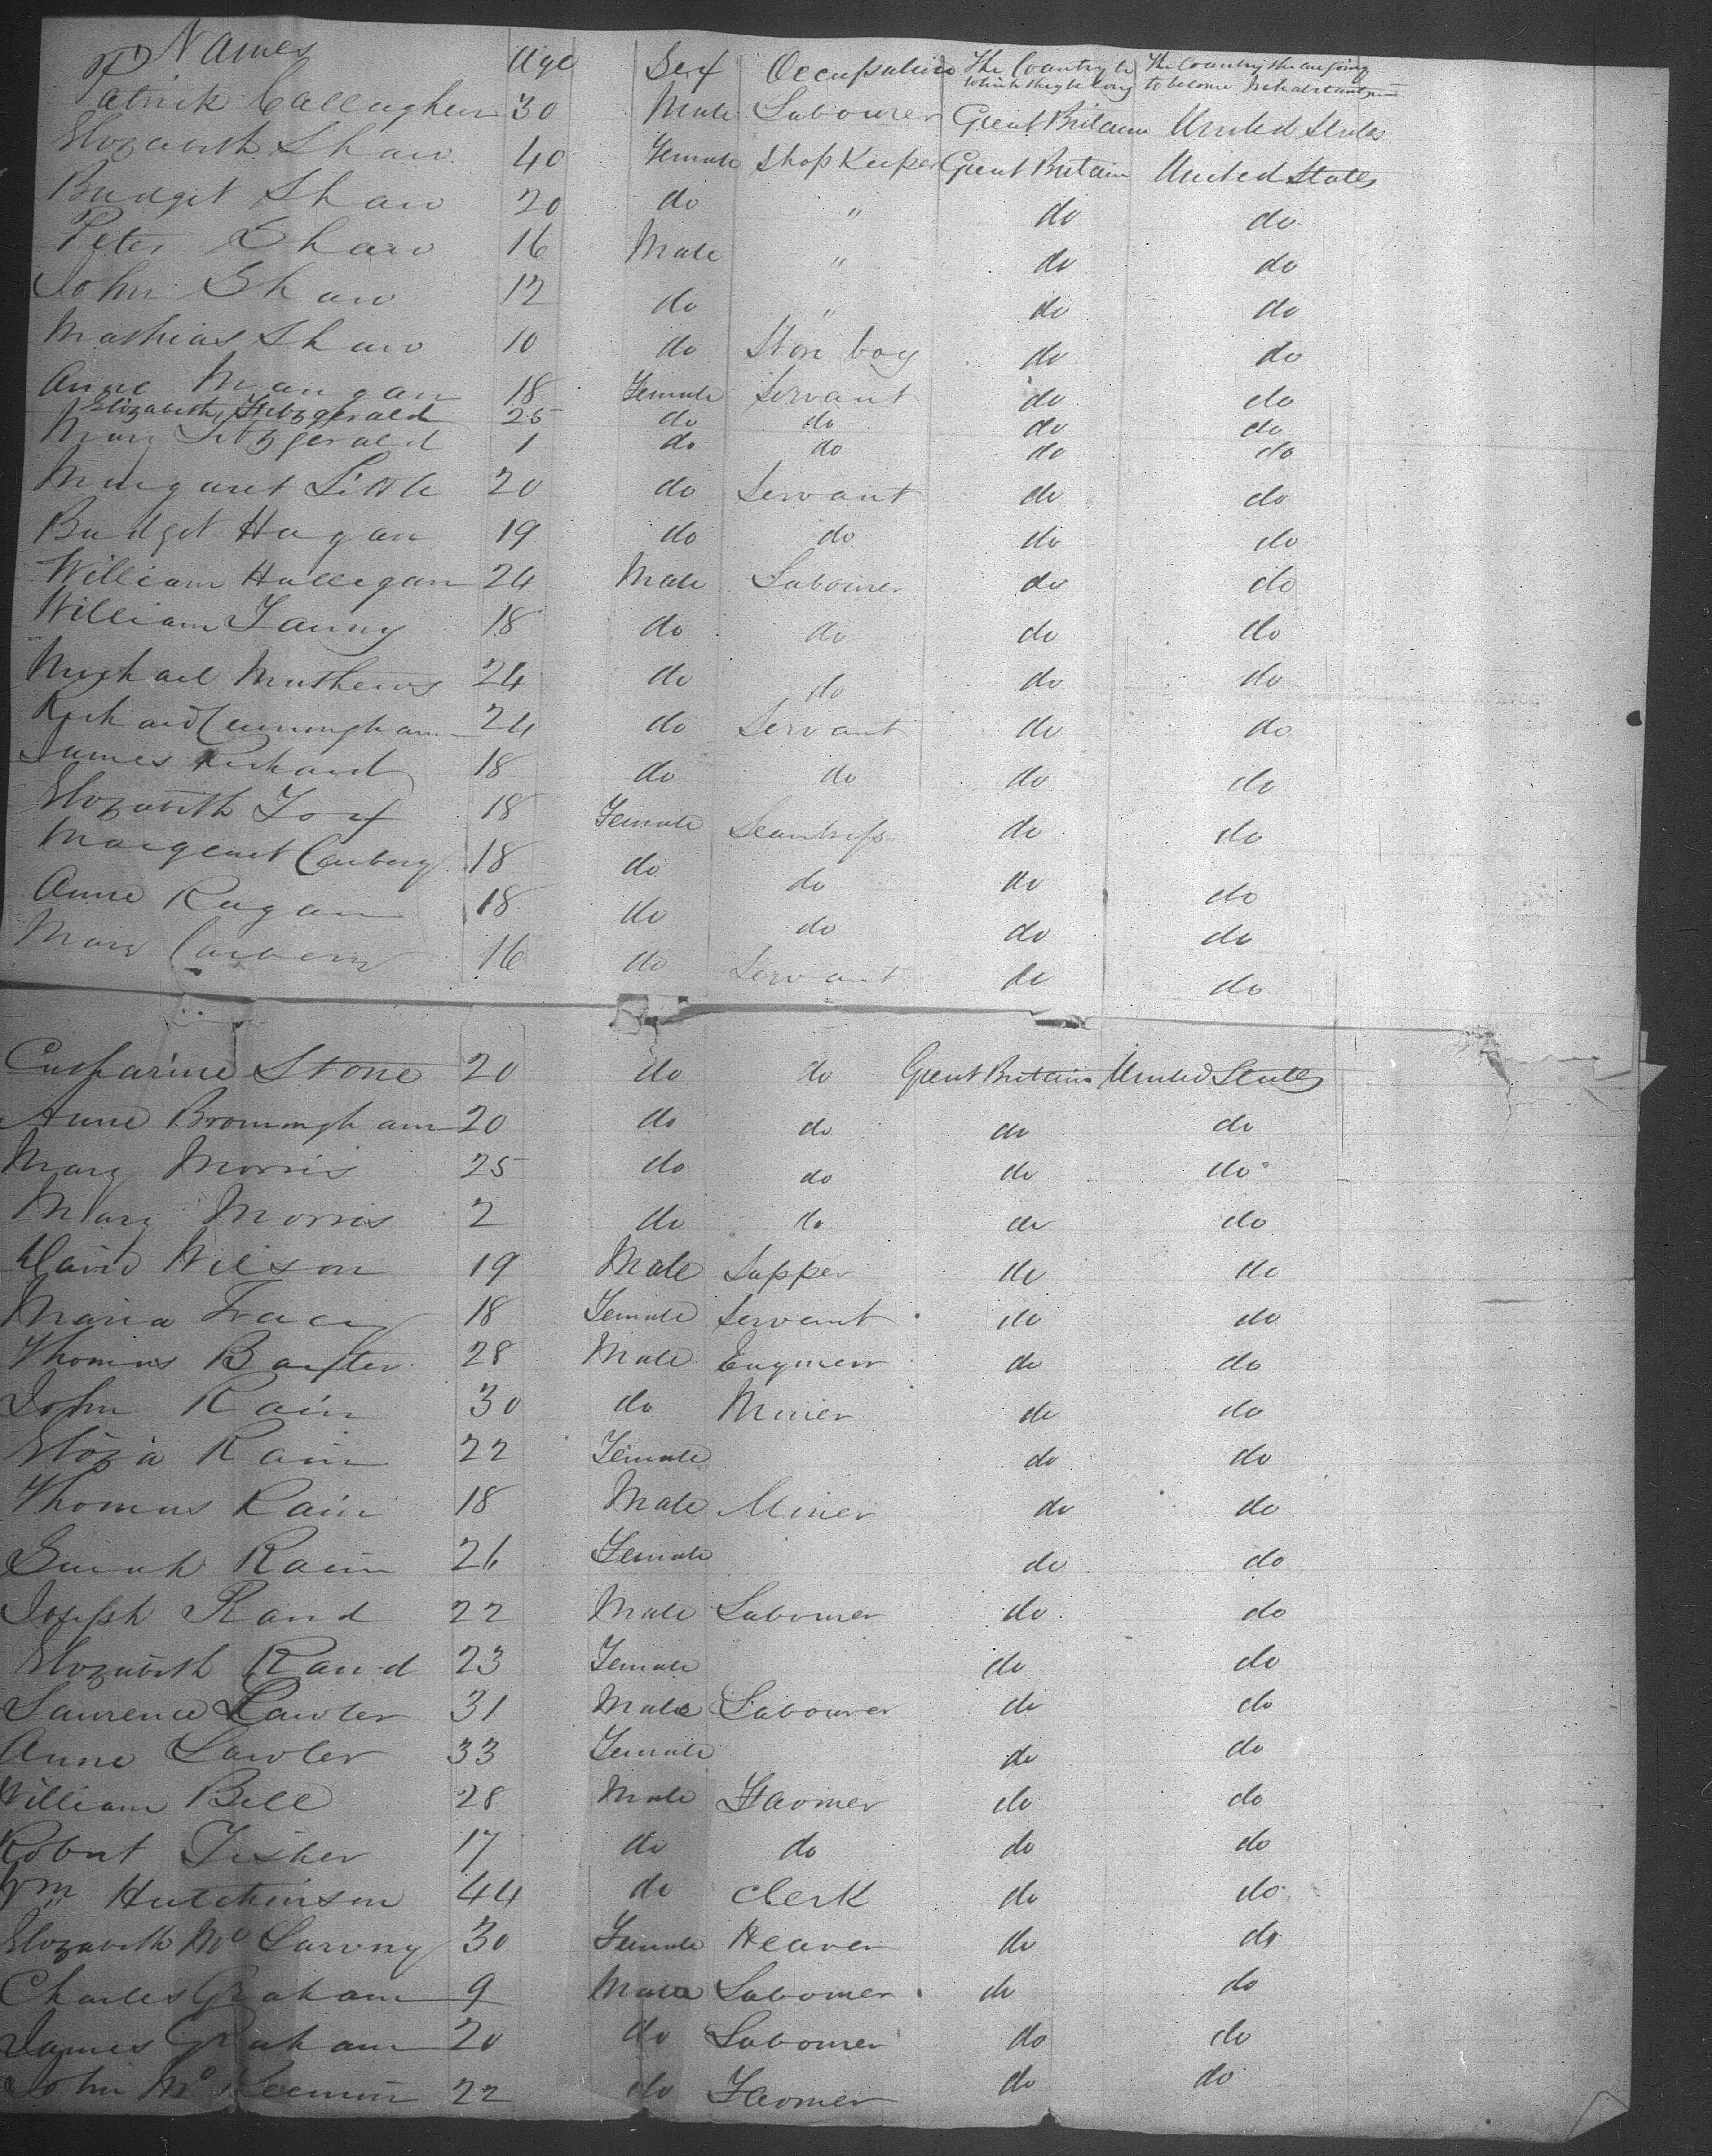 Names Age Sex Occupation The Country to which they belong The Country they are going to become inhabitants
Patrick Callaghan 30 Male Labourer Great Britain United States
Elizabeth Shaw 40 Female Shop Keeper Great Britain United States
Bridget Shaw 20 do " do do
Peter Shaw 16 Male " do do
John Shaw 12 do " do do
Mathias Shaw 10 do Store boy do do
Anne Mangan 18 Female Servant do do
Elizabeth Fitzgerald 25 do do do do
Mary Fitzgerald 1 do do do do
Margaret Little 20 do Servant do do
Bridget Hagan 19 do do do do
William Halligan 24 Male Labourer do do
William Fanny 18 do do do do
Michael Mathews 24 do do do do
Richard Cunningham 24 do Servant do do
James Richard 18 do do do do
Elizabeth Fox 18 Female do do
Margaret Carbery 18 do do do do
Anne Ragan 18 do do do do
Mary Carbery 16 do Servant do do
Catharine Stone 20 do do Great Britain United States
Anne Bromingham 20 do do do do
Mary Morris 25 do do do do
Mary Morris 2 do do do do
David Wilson 19 Male Sapper do do
Maria Tracy 18 Female Servant do do
Thomas Baxter 28 Male Engineer do do
John Rain 30 do Miner do do
Eliza Rain 22 Female do do
Thomas Rain 18 Male Miner do do
Sarah Rain 26 Female do do
Joseph Rand 22 Male Labourer do do
Elizabeth Rand 23 Female do do
Laurence Lawler 31 Male Labourer do do
Anne Lawler 33 Female do do
William Bell 28 Male Farmer do do
Robert Fisher 17 do do do do
Wm Hutchinson 44 do Clerk do do
Elizabeth Mc 30 Female do do
Charles Graham 9 Male Labourer do do
James Graham 20 do Labourer do do
John Mc 22 do Farmer do do